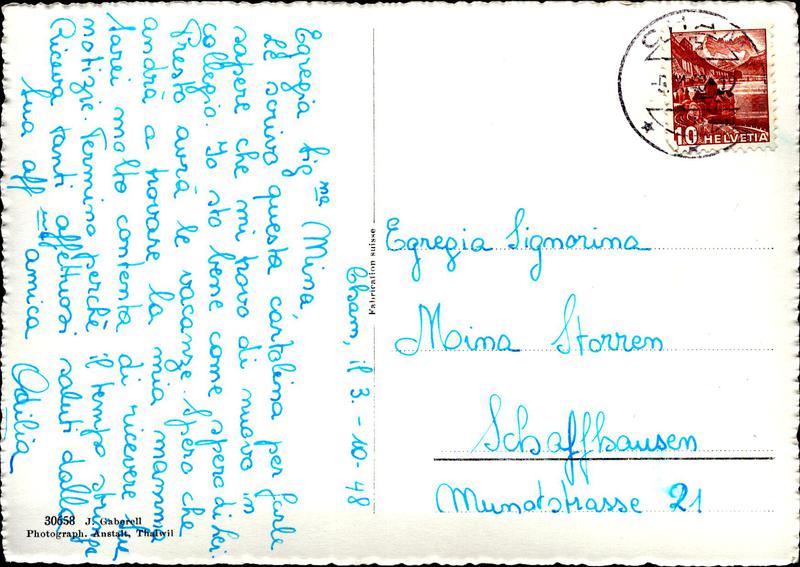 Cham, il 3.-10-48
Egregia Sig.na Mina,
Le scrivo questa cartolina per farle
sapere che mi trovo di nuovo in
collegio. Io sto bene come spero di Lei.
Presto avrà le vacanze. Spero che
andrà a trovare la mia mamma
Sarei molto contenta di ricevere sue
notizie. Termino perchè il tempo stringe
Riceva tanti affettuosi saluti dalla
Sua aff amica Odilia
30658 J. Gaberell
Photograph. Anstalt, Thalwil
Fabrication suisse
10 HELVETIA
Egregia Signorina
Mina Storren
Schaffhausen
Mundtstrasse 21